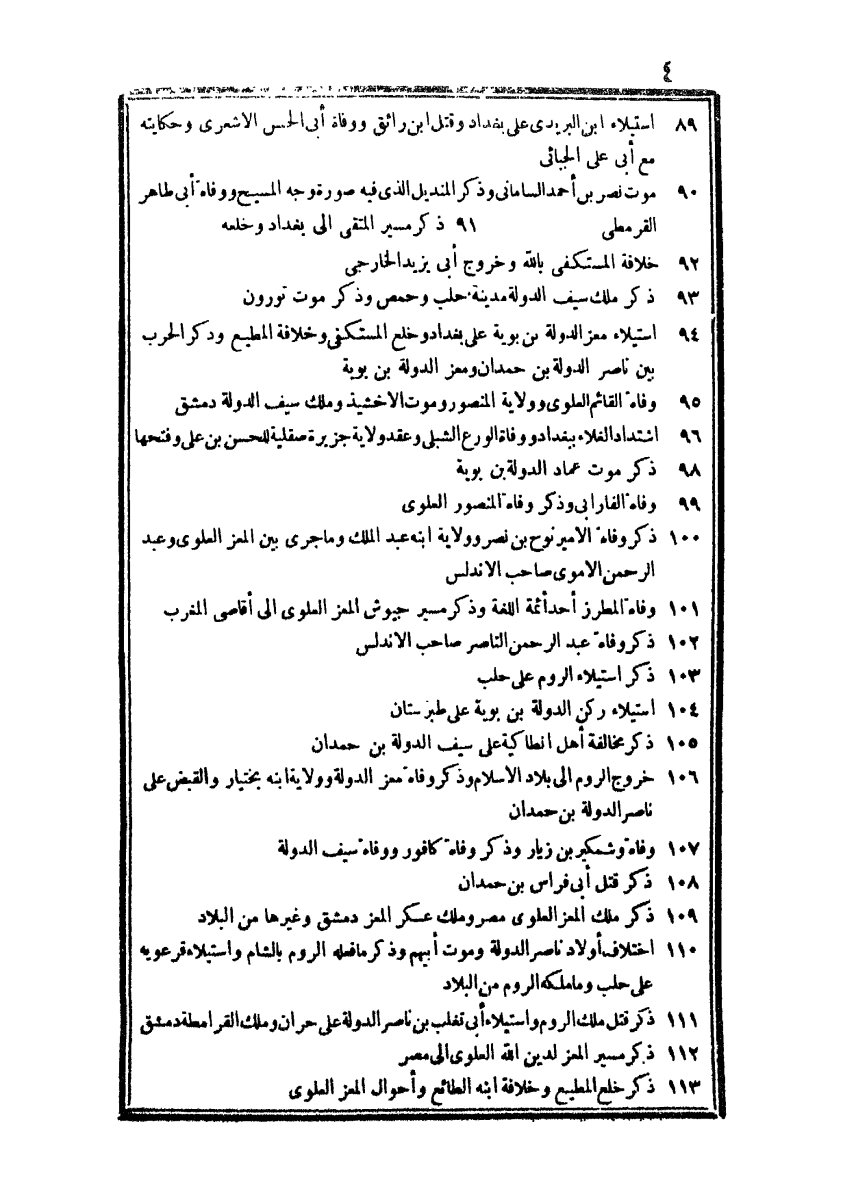 ٤
٨٩ استيلاء ابن البريدى على بغداد وقتل ابن رائق ووفاة أبى الحسن الاشعرى وحكايته
مع أبى على الجبائى
٩٠ موت نصر بن أحمد السامانى وذكر المنديل الذى فيه صورة وجه المسيح ووفاة أبى طاهر
القرمطى ٩١ ذكر مسير المتقى الى بغداد وخلعه
٩٢ خلافة المستكفى بالله وخروج أبى يزيد الخارجى
٩٣ ذكر ملك سيف الدولة مدينة حلب وحمص وذكر موت تورون
٩٤ استيلاء معز الدولة بن بوية على بغداد وخلع المستكفى وخلافة المطيع وذكر الحرب
بين ناصر الدولة بن حمدان ومعز الدولة بن بوية
٩٥ وفاة القائم العلوى وولاية المنصور وموت الاخشيذ وملك سيف الدولة دمشق
٩٦ اشتداد الغلاء ببغداد ووفاة الورع الشبلى وعقد ولاية جزيرة صقلية للحسن بن على وفتحها
٩٨ ذكر موت عماد الدولة بن بوية
٩٩ وفاة الفارابى وذكر وفاة المنصور العلوى
١٠٠ ذكر وفاة الامير نوح بن نصر وولاية ابنه عبد الملك وماجرى بين المعز العلوى وعبد
الرحمن الاموى صاحب الاندلس
١٠١ وفاة المطرز أحد أئمة اللغة وذكر مسير جيوش المعز العلوى الى أقاصى المغرب
١٠٢ ذكر وفاة عبد الرحمن الناصر صاحب الاندلس
١٠٣ ذكر استيلاء الروم على حلب
١٠٤ استيلاء ركن الدولة بن بوية على طبرستان
١٠٥ ذكر مخالفة أهل انطاكية على سيف الدولة بن حمدان
١٠٦ خروج الروم الى بلاد الاسلام وذكر وفاة معز الدولة وولاية ابنه بختيار والقبض على
ناصر الدولة بن حمدان
١٠٧ وفاة وشمكير بن زيار وذكر وفاة كافور ووفاة سيف الدولة
١٠٨ ذكر قتل أبى فراس بن حمدان
١٠٩ ذكر ملك المعز العلوى مصر وملك عسكر المعز دمشق وغيرها من البلاد
١١٠ اختلاف أولاد ناصر الدولة وموت أبيهم وذكر مافعله الروم بالشام واستيلاء قرعويه
على حلب وماملكه الروم من البلاد
١١١ ذكر قتل ملك الروم واستيلاء أبى تغلب بن ناصر الدولة على حران وملك القرامطة دمشق
١١٢ ذكر مسير المعز لدين الله العلوى الى مصر
١١٣ ذكر خلع المطيع وخلافة ابنه الطائع وأحوال المعز العلوى